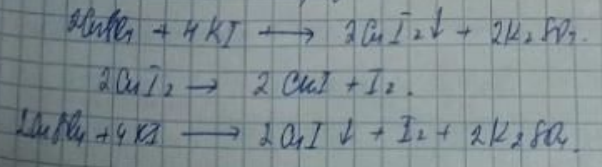 2CuSO₄ + 4KI ⟶ 2CuI₂↓ + 2K₂SO₄.
2CuI₂ → 2CuI + I₂.
2CuSO₄ + 4KI ⟶ 2CuI↓ + I₂ + 2K₂SO₄.